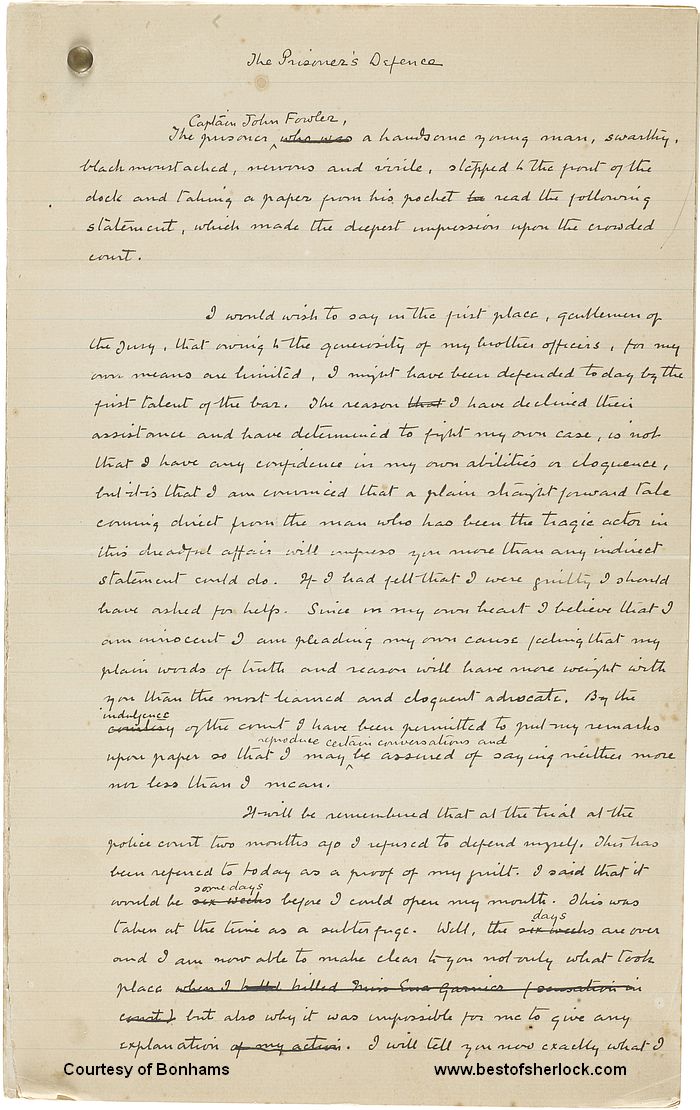 The Prisoner's Defence
Captain John Fowler,
The prisoner who was a handsome young man, swarthy,
black moustached, nervous and virile, stepped to the front of the
dock and taking a paper from his pocket he read the following
statement, which made the deepest impression upon the crowded
court.
I would wish to say in the first place, gentlemen of
the Jury, that owing to the generosity of my brother officers, for my
own means are limited, I might have been defended today by the
first talent of the bar. The reason that I have declined their
assistance and have determined to fight my own case, is not
that I have any confidence in my own abilities or eloquence,
but it is that I am convinced that a plain straightforward tale
coming direct from the man who has been the tragic actor in
this dreadful affair will impress you more than any indirect
statement could do. If I had felt that I were guilty I should
have asked for help. Since in my own heart I believe that I
am innocent I am pleading my own cause feeling that my
plain words of truth and reason will have more weight with
you than the most learned and eloquent advocate. By the
indulgence
courtesy of the court I have been permitted to put my remarks
reproduce certain conversations and
upon paper so that I may be assured of saying neither more
nor less than I mean.
It will be remembered that at the trial at the
police court two months ago I refused to defend myself. This has
been referred to today as a proof of my guilt. I said that it
some days
would be six weeks before I could open my mouth. This was
taken at the time as a subterfuge. Well, the six weeks are over
days
and I am now able to make clear to you not only what took
place when I killed Miss Ena Garnier (sensation in
court) but also why it was impossible for me to give any
explanation of my action. I will tell you now exactly what I
Courtesy of Bonhams
www.bestofsherlock.com